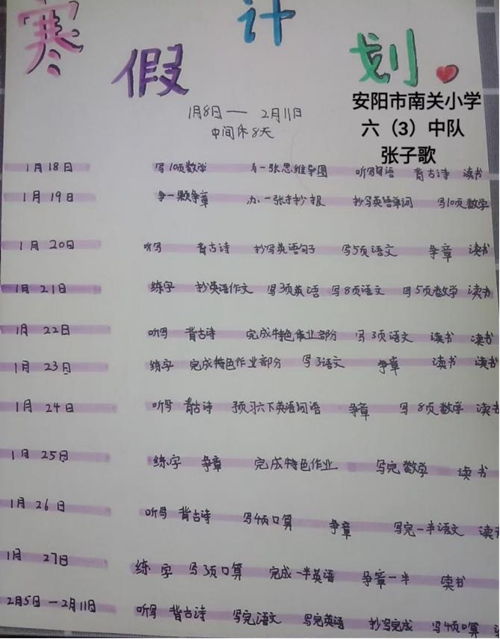 寒假计划
安阳市南关小学
六（3）中队
张子歌
1月8日——2月11日
中间休8天
1月18日 写10页数学 一张思维导图 听写词语 背古诗 读书
1月19日 争一颗争章 办一张手抄报 抄写英语单词 写10页数学
1月20日 听写 背古诗 抄写英语句子 写5页语文 争章 读书
1月21日 练字 抄英语作文 写3页英语 写8页语文 写5页数学 读书
1月22日 听写 背古诗 完成特色作业部分 写3页语文 读书 读书
1月23日 练字 完成特色作业部分 写3语文 争章 读书 读书
1月24日 听写 背古诗 预习六下英语词语 争章 写8页数学 读书
1月25日 练字 争章 完成特色作业 写完数学 读书
1月26日 听写 背古诗 写4页口算 争章 写完一半语文 读书
1月27日 练字 写3页口算 完成一半英语 争章一半 读书
2月5日—2月11日 听写 背古诗 写完语文 写完英语 抄写完成 写4页口算